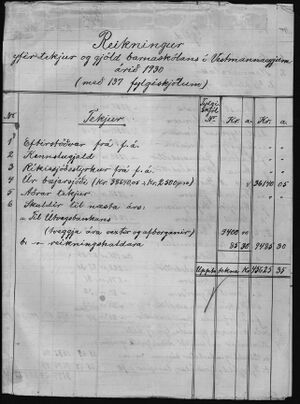 Reikningur
yfir tekjur og gjöld barnaskólans í Vestmannaeyjum
árið 1930
(með 137 fylgiskjölum)
Nr. Tekjur Fylgi skjöl Nr. Kr. a. Kr. a.
1 Eftirstöðvar frá f. á.
2 Kennslugjald
3 Ríkissjóðsstyrkur frá f. á.
4 Úr bæjarsjóði (Kr. 38640,05 ÷ Kr. 2500,00) 36140 05
5 Aðrar tekjur
6 Skuldir til næsta árs:
a Til Útvegsbankans
(tveggja ára vextir og afborganir) 9400 00
b " reikningshaldara 85 30 9485 30
Upphæð tekna Kr. 45625 35